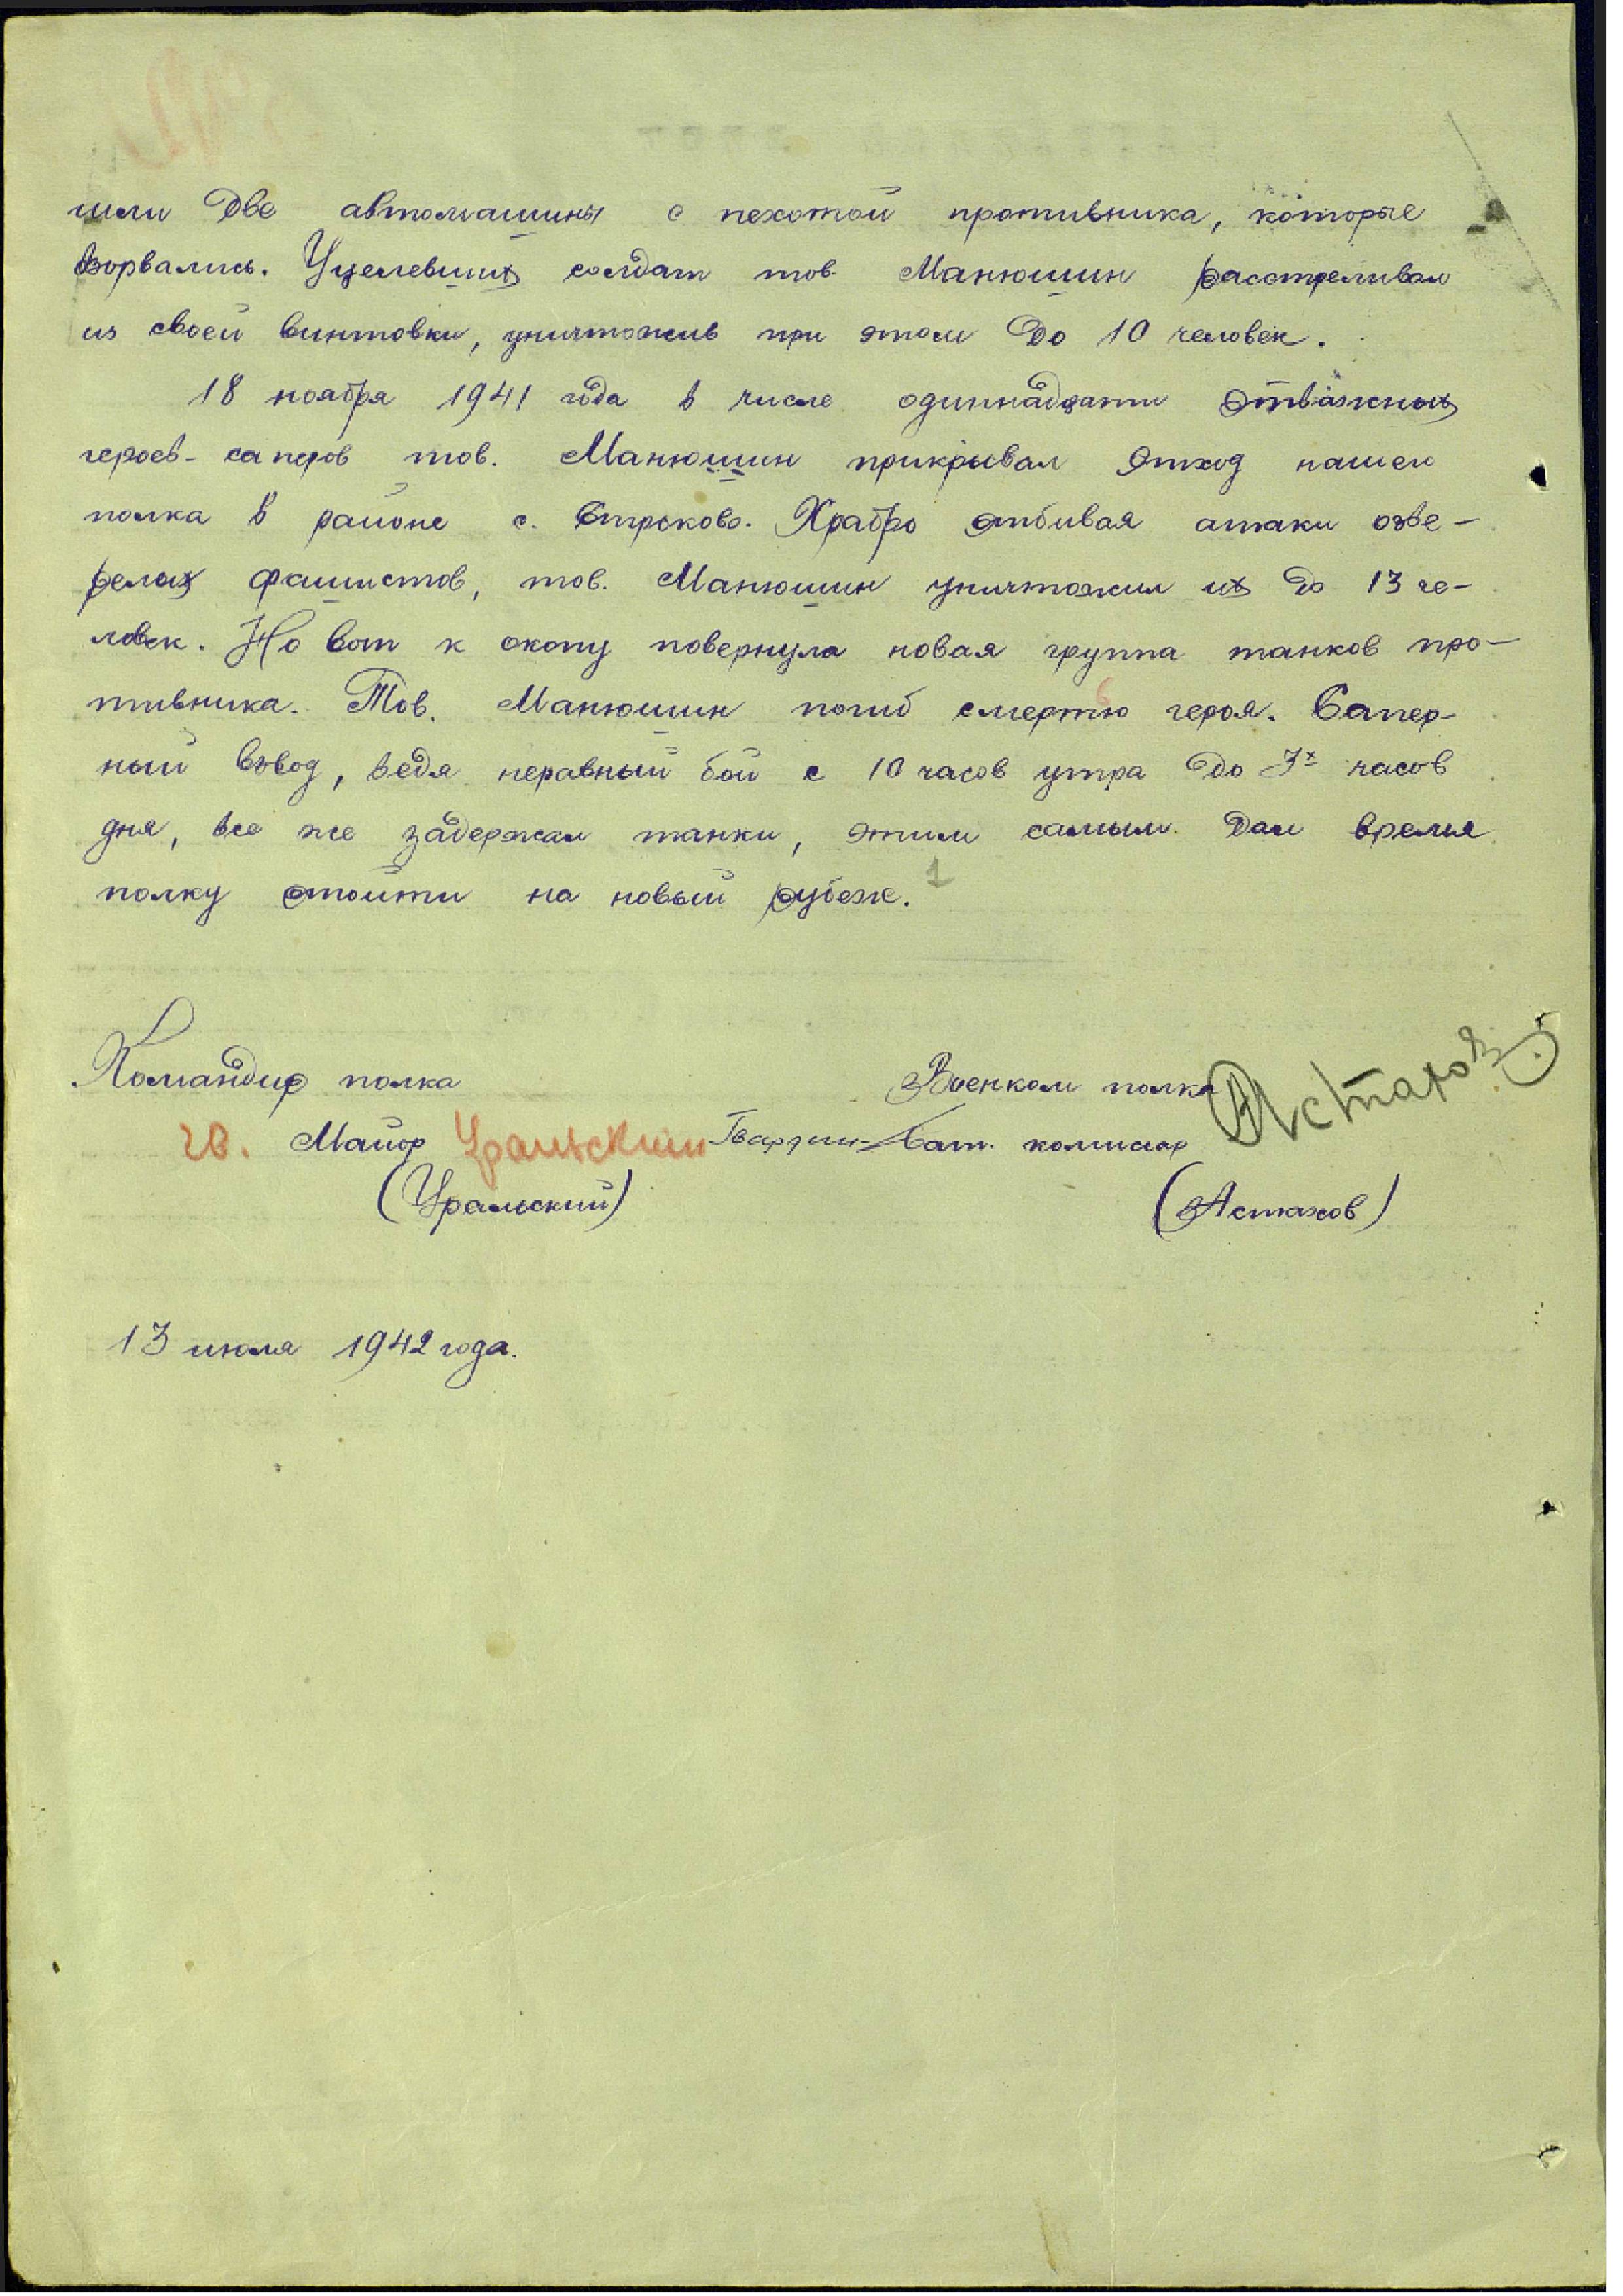 шли две автомашины с пехотой противника, которые
взорвались. Уцелевших солдат тов. Манюшин расстреливал
из своей винтовки, уничтожив при этом до 10 человек.
18 ноября 1941 года в числе одиннадцати отважных
героев-саперов тов. Манюшин прикрывал отход нашего
полка в районе с. Строково. Храбро отбивая атаки озве-
релых фашистов, тов. Манюшин уничтожил их до 13 че-
ловек. Но вот к окопу повернула новая группа танков про-
тивника. Тов. Манюшин погиб смертью героя. Сапер-
ный взвод, ведя неравный бой с 10 часов утра до 3х часов
дня, все же задержал танки, этим самым дал время
полку отойти на новый рубеж. 1
Командир полка Военком полка Астахов
гв. Майор Уральский Гвардии Бат. комиссар
(Уральский) (Астахов)
13 июля 1942 года.